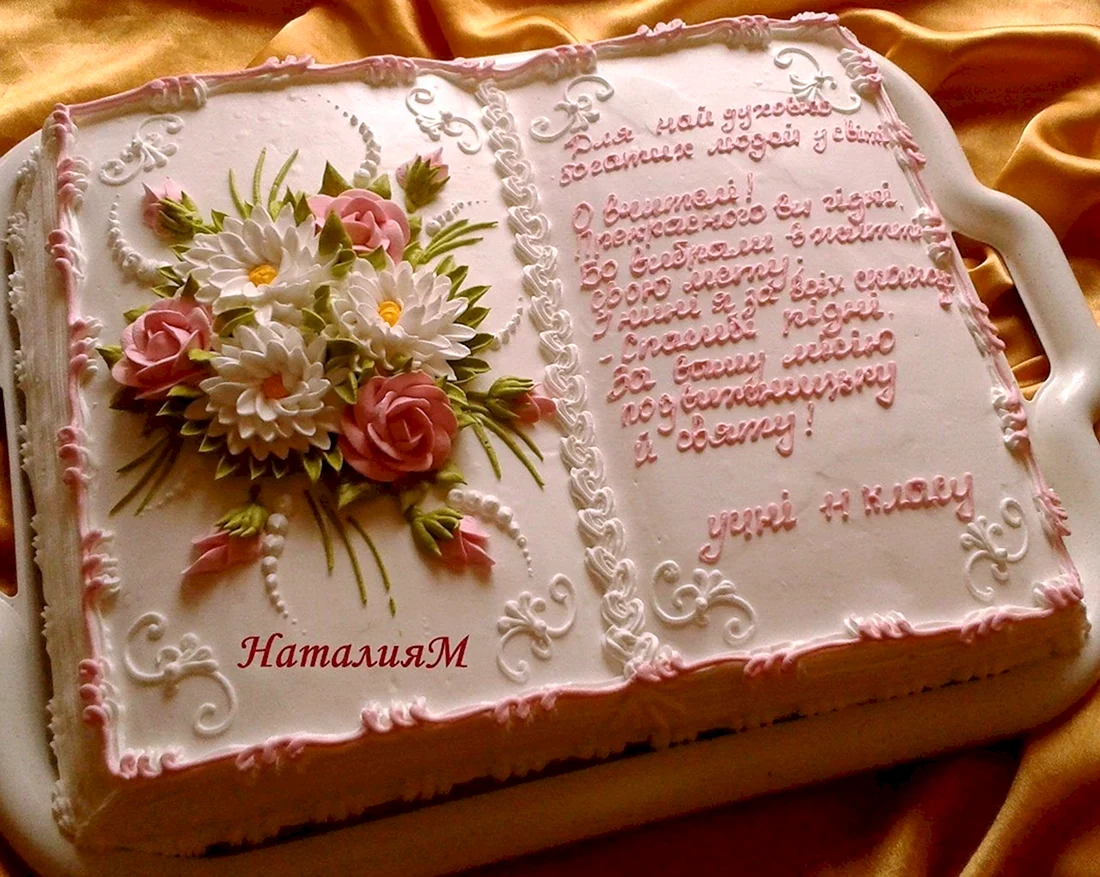 Для най духовно
богатих людей у світі
О вчителі!
Прекрасного ви гідні,
Бо вибрали в життя
свою мету.
Уклін я за всіх
- спасибі рідні.
За вашу місію
подвижницьку
й святу!
учні 11 класу
НаталияМ